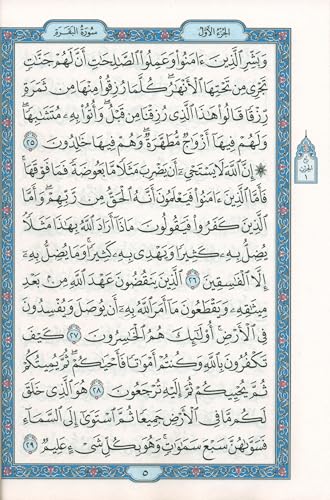 سُورَةُ البَقَرَةِ
الجُزْءُ الأَوَّلُ
وَبَشِّرِ ٱلَّذِينَ ءَامَنُوا۟ وَعَمِلُوا۟ ٱلصَّـٰلِحَـٰتِ أَنَّ لَهُمْ جَنَّـٰتٍ
تَجْرِى مِن تَحْتِهَا ٱلْأَنْهَـٰرُ ۖ كُلَّمَا رُزِقُوا۟ مِنْهَا مِن ثَمَرَةٍ
رِّزْقًا ۙ قَالُوا۟ هَـٰذَا ٱلَّذِى رُزِقْنَا مِن قَبْلُ ۖ وَأُتُوا۟ بِهِۦ مُتَشَـٰبِهًا ۖ
وَلَهُمْ فِيهَآ أَزْوَٰجٌ مُّطَهَّرَةٌ ۖ وَهُمْ فِيهَا خَـٰلِدُونَ ٢٥
۞ إِنَّ ٱللَّهَ لَا يَسْتَحْىِۦٓ أَن يَضْرِبَ مَثَلًا مَّا بَعُوضَةً فَمَا فَوْقَهَا ۚ
فَأَمَّا ٱلَّذِينَ ءَامَنُوا۟ فَيَعْلَمُونَ أَنَّهُ ٱلْحَقُّ مِن رَّبِّهِمْ ۖ وَأَمَّا
ٱلَّذِينَ كَفَرُوا۟ فَيَقُولُونَ مَاذَآ أَرَادَ ٱللَّهُ بِهَـٰذَا مَثَلًا ۘ
يُضِلُّ بِهِۦ كَثِيرًا وَيَهْدِى بِهِۦ كَثِيرًا ۚ وَمَا يُضِلُّ بِهِۦٓ
إِلَّا ٱلْفَـٰسِقِينَ ٢٦ ٱلَّذِينَ يَنقُضُونَ عَهْدَ ٱللَّهِ مِنۢ بَعْدِ
مِيثَـٰقِهِۦ وَيَقْطَعُونَ مَآ أَمَرَ ٱللَّهُ بِهِۦٓ أَن يُوصَلَ وَيُفْسِدُونَ
فِى ٱلْأَرْضِ ۚ أُو۟لَـٰٓئِكَ هُمُ ٱلْخَـٰسِرُونَ ٢٧ كَيْفَ
تَكْفُرُونَ بِٱللَّهِ وَكُنتُمْ أَمْوَٰتًا فَأَحْيَـٰكُمْ ۖ ثُمَّ يُمِيتُكُمْ
ثُمَّ يُحْيِيكُمْ ثُمَّ إِلَيْهِ تُرْجَعُونَ ٢٨ هُوَ ٱلَّذِى خَلَقَ
لَكُم مَّا فِى ٱلْأَرْضِ جَمِيعًا ثُمَّ ٱسْتَوَىٰٓ إِلَى ٱلسَّمَآءِ
فَسَوَّىٰهُنَّ سَبْعَ سَمَـٰوَٰتٍ ۚ وَهُوَ بِكُلِّ شَىْءٍ عَلِيمٌ ٢٩
٥